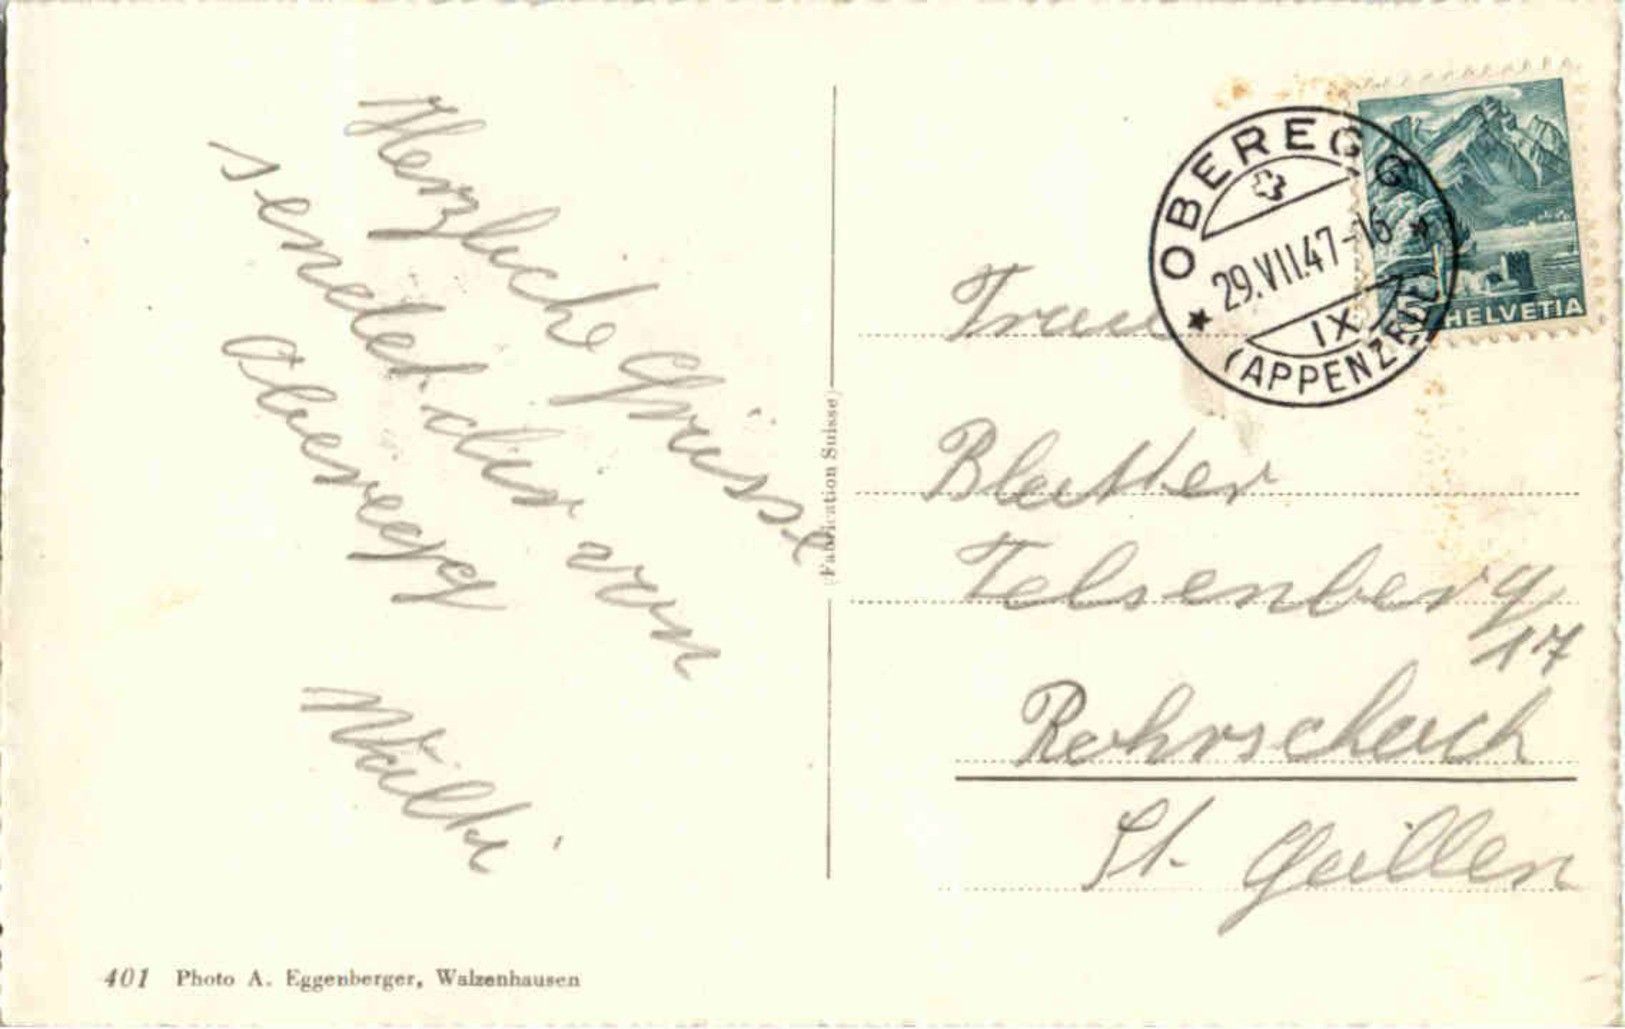 Herzliche Grüsse
sendet dir von
Oberegg
Walti
401 Photo A. Eggenberger, Walzenhausen
(Fabrication Suisse)
OBEREGG
29.VII.47-16
IX
(APPENZELL)
HELVETIA
Frau
Blatter
Felsenberg
17
Rohrschach
St. Gallen